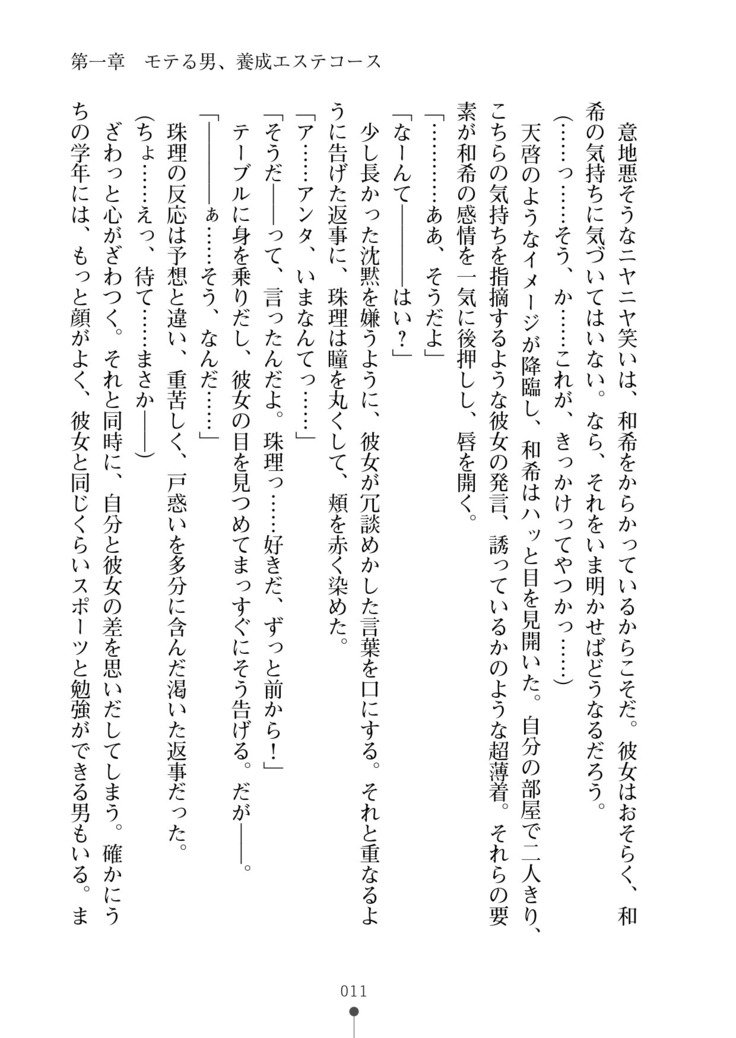 第一章　モテる男、養成エステコース
　意地悪そうなニヤニヤ笑いは、和希をからかっているからこそだ。彼女はおそらく、和
希の気持ちに気づいてはいない。なら、それをいま明かせばどうなるだろう。
（……っ……そう、か……これが、きっかけってやつかっ……）
　天啓のようなイメージが降臨し、和希はハッと目を見開いた。自分の部屋で二人きり、
こちらの気持ちを指摘するような彼女の発言、誘っているかのような超薄着。それらの要
素が和希の感情を一気に後押しし、唇を開く。
「…………ああ、そうだよ」
「なーんて――――はい？」
　少し長かった沈黙を嫌うように、彼女が冗談めかした言葉を口にする。それと重なるよ
うに告げた返事に、珠理は瞳を丸くして、頬を赤く染めた。
「ア……アンタ、いまなんてっ……」
「そうだ――って、言ったんだよ。珠理っ……好きだ、ずっと前から！」
　テーブルに身を乗りだし、彼女の目を見つめてまっすぐにそう告げる。だが――。
「――――ぁ……そう、なんだ……」
　珠理の反応は予想と違い、重苦しく、戸惑いを多分に含んだ渇いた返事だった。
（ちょ……えっ、待て……まさか――）
　ざわっと心がざわつく。それと同時に、自分と彼女の差を思いだしてしまう。確かにう
ちの学年には、もっと顔がよく、彼女と同じくらいスポーツと勉強ができる男もいる。ま
011